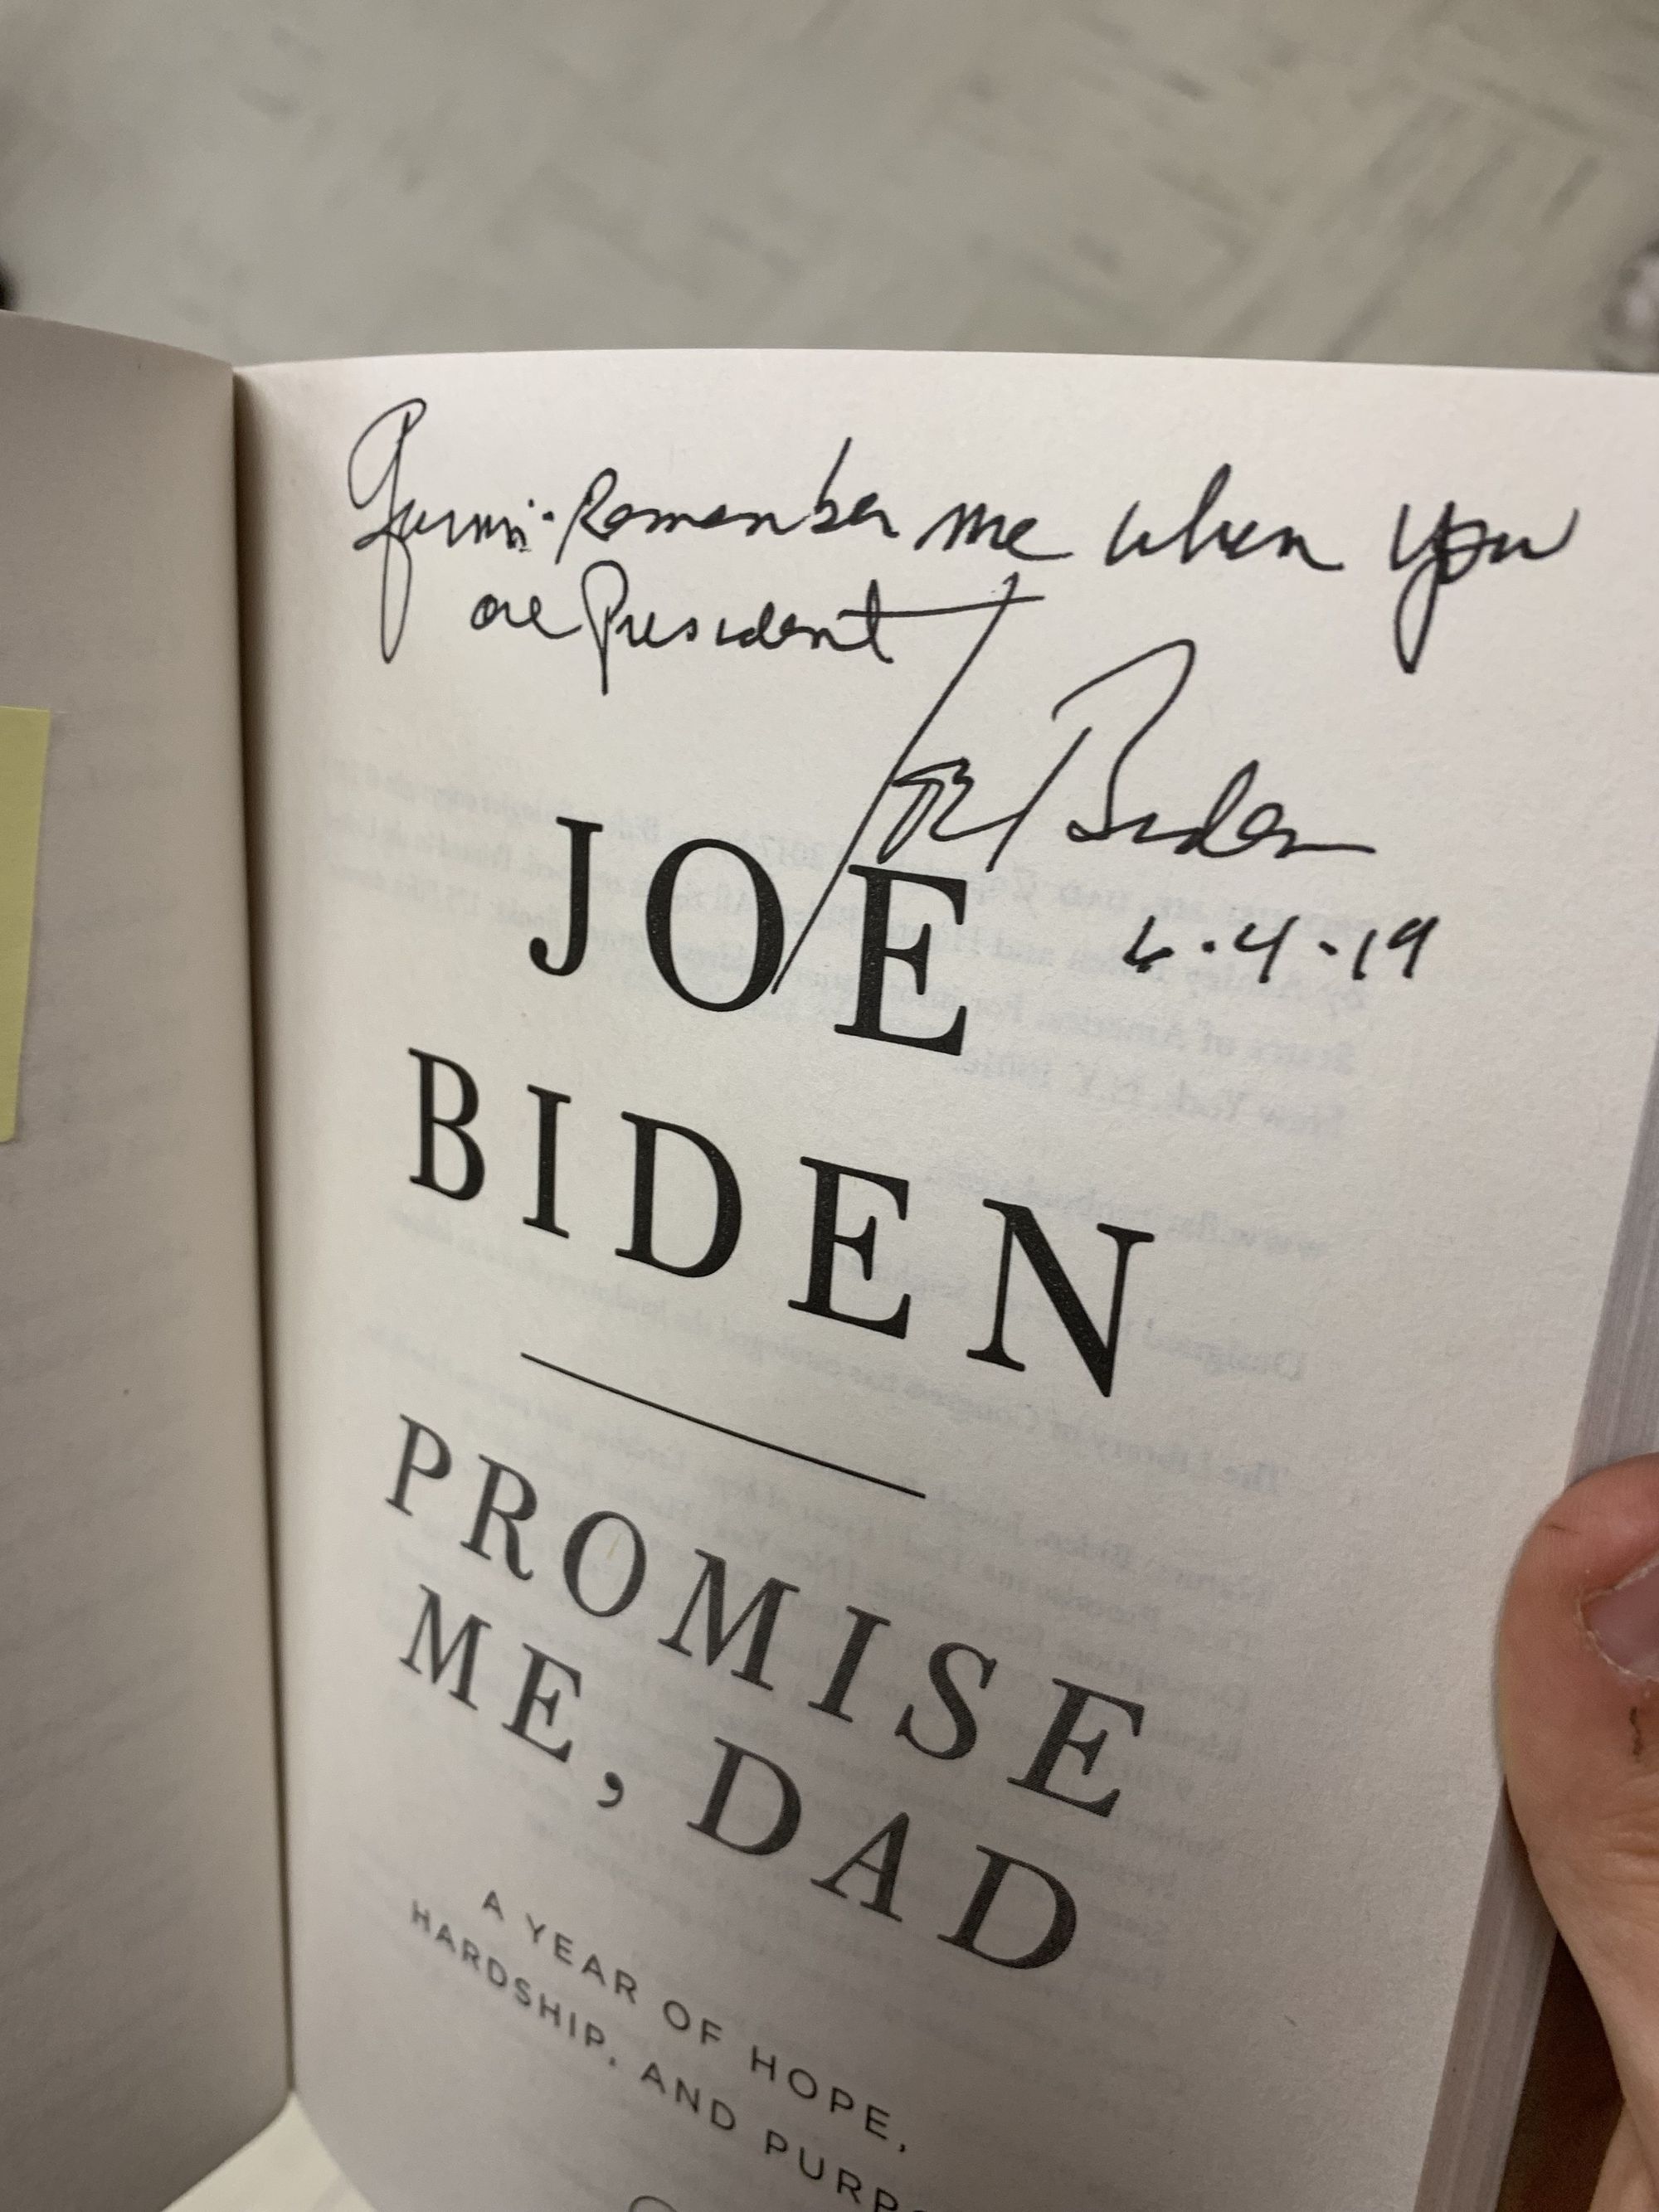 Remember me when you
are President
Joe Biden
6.4.19
JOE
BIDEN
PROMISE
ME, DAD
A YEAR OF HOPE,
HARDSHIP, AND